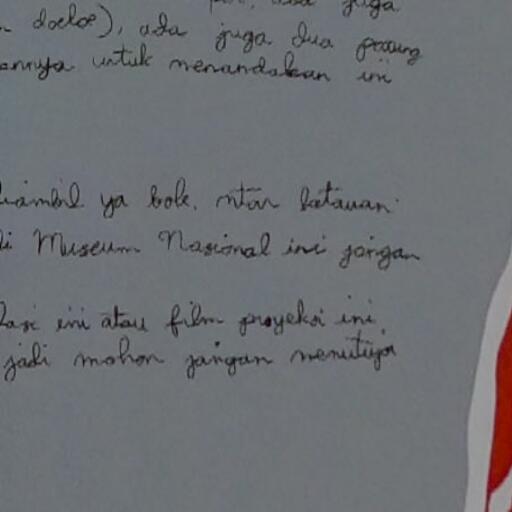 juga
doeloe), ada juga dua patung
annya untuk menandakan ini
diambil ya bole. ntar ketauan
di Museum Nasional ini jangan
lasi ini atau film proyeksi ini,
jadi mohon jangan menutupi